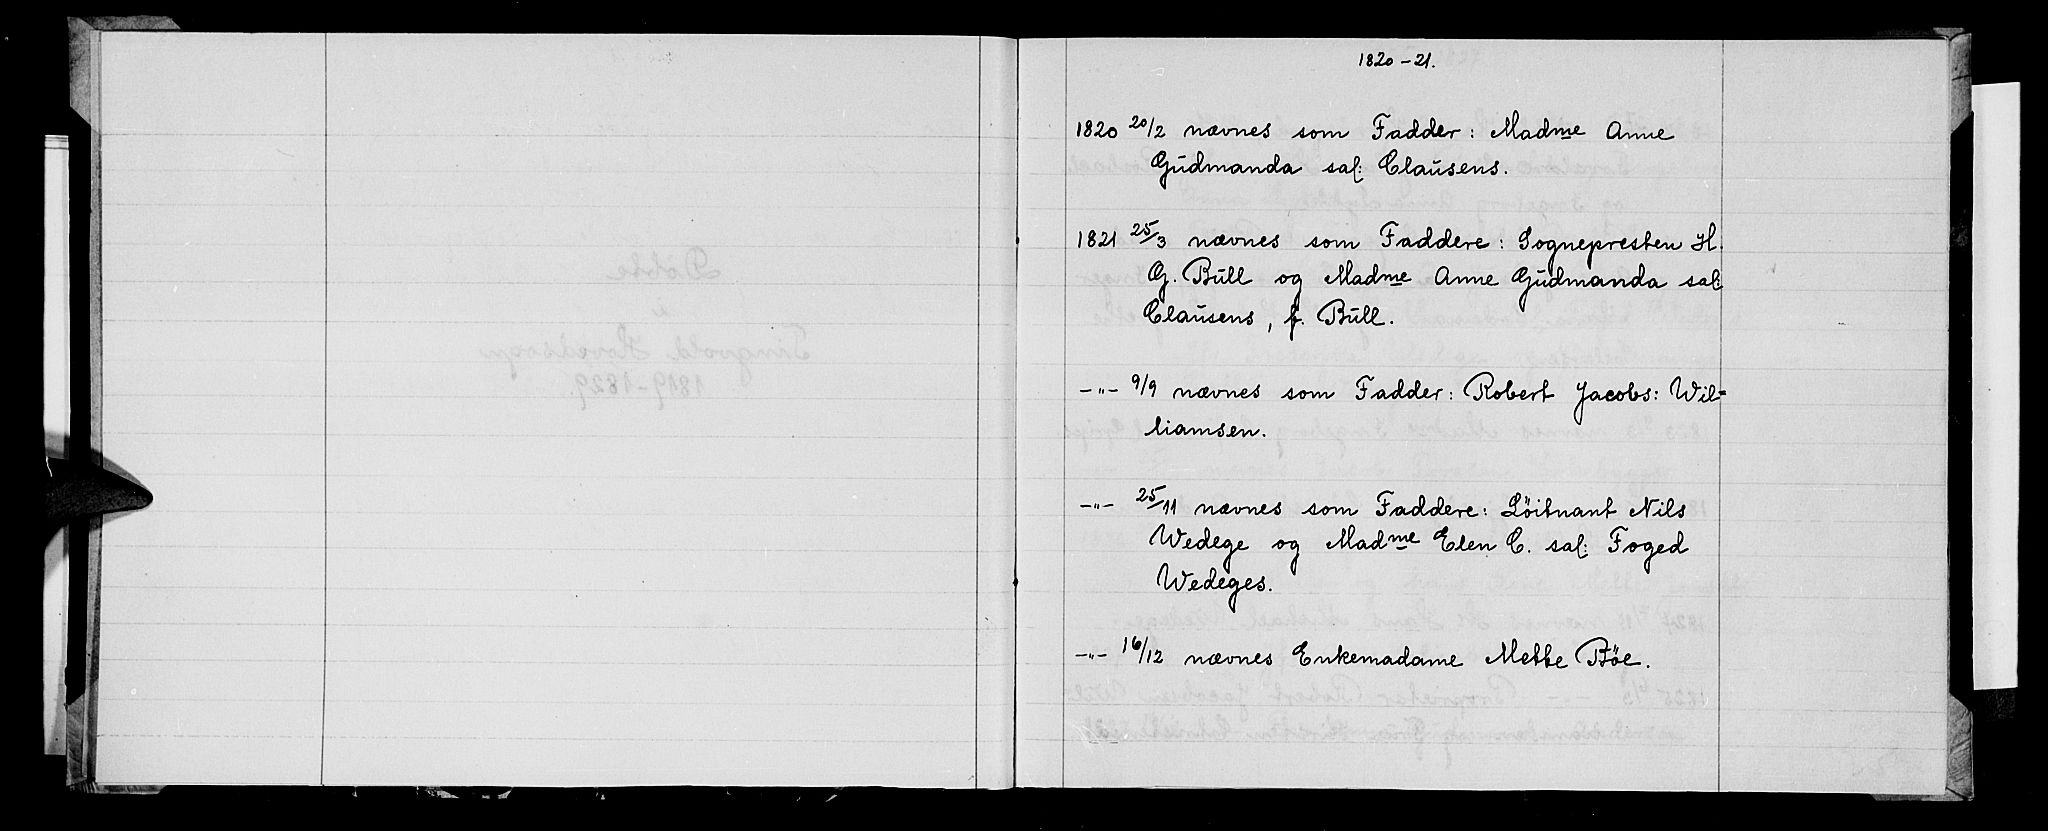 1820-21.
1820 20/2 nævnes som Fadder: Madme Anne
Gudmanda sal: Clausens.
1821 25/3 nævnes som Faddere: Sognepresten H.
G. Bull og Madme Anne Gudmanda sal:
Clausens, f. Bull.
-"- 9/9 nævnes som Fadder: Robert Jacobs: Wil=
liamsen.
-"- 25/11 nævnes som Faddere: Löitnant Nils
Wedege og Madme Elen C. sal: Foged
Wedeges.
-"- 16/12 nævnes Enkemadame Mette Böe.